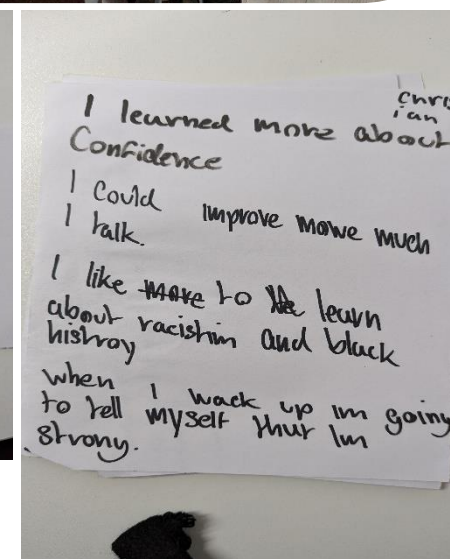 chris
ian
I learned more about
Confidence
I Could improve mowe much
I talk.
I like more to He learn
about racishin and black
histroy
when I wack up im going
to tell myself thut Im
strong.